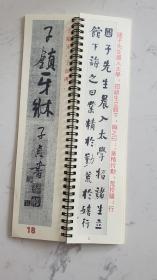 國子先生晨入太學，招諸生立館下，誨之曰：業精於勤，荒於嬉；行
國子先生晨入太學招諸生立
館下誨之曰業精於勤荒於嬉行
子貞書
18